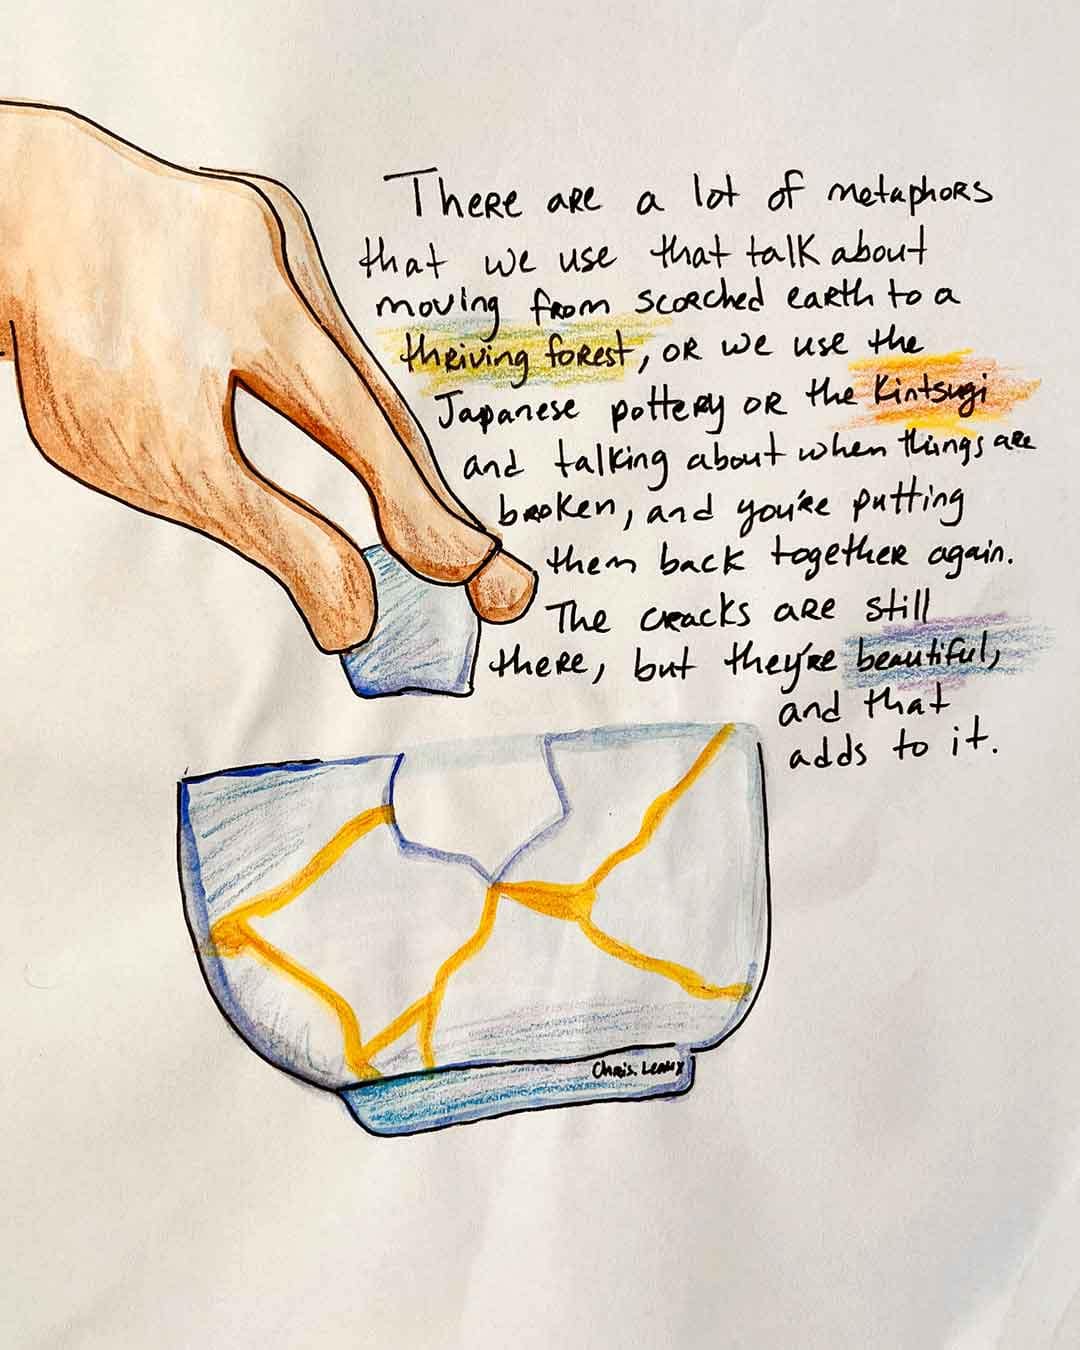 There are a lot of metaphors
that we use that talk about
moving from scorched earth to a
thriving forest, or we use the
Japanese pottery or the Kintsugi
and talking about when things are
broken, and you're putting
them back together again.
The cracks are still
there, but they're beautiful,
and that
adds to it.
Chris. Leaux